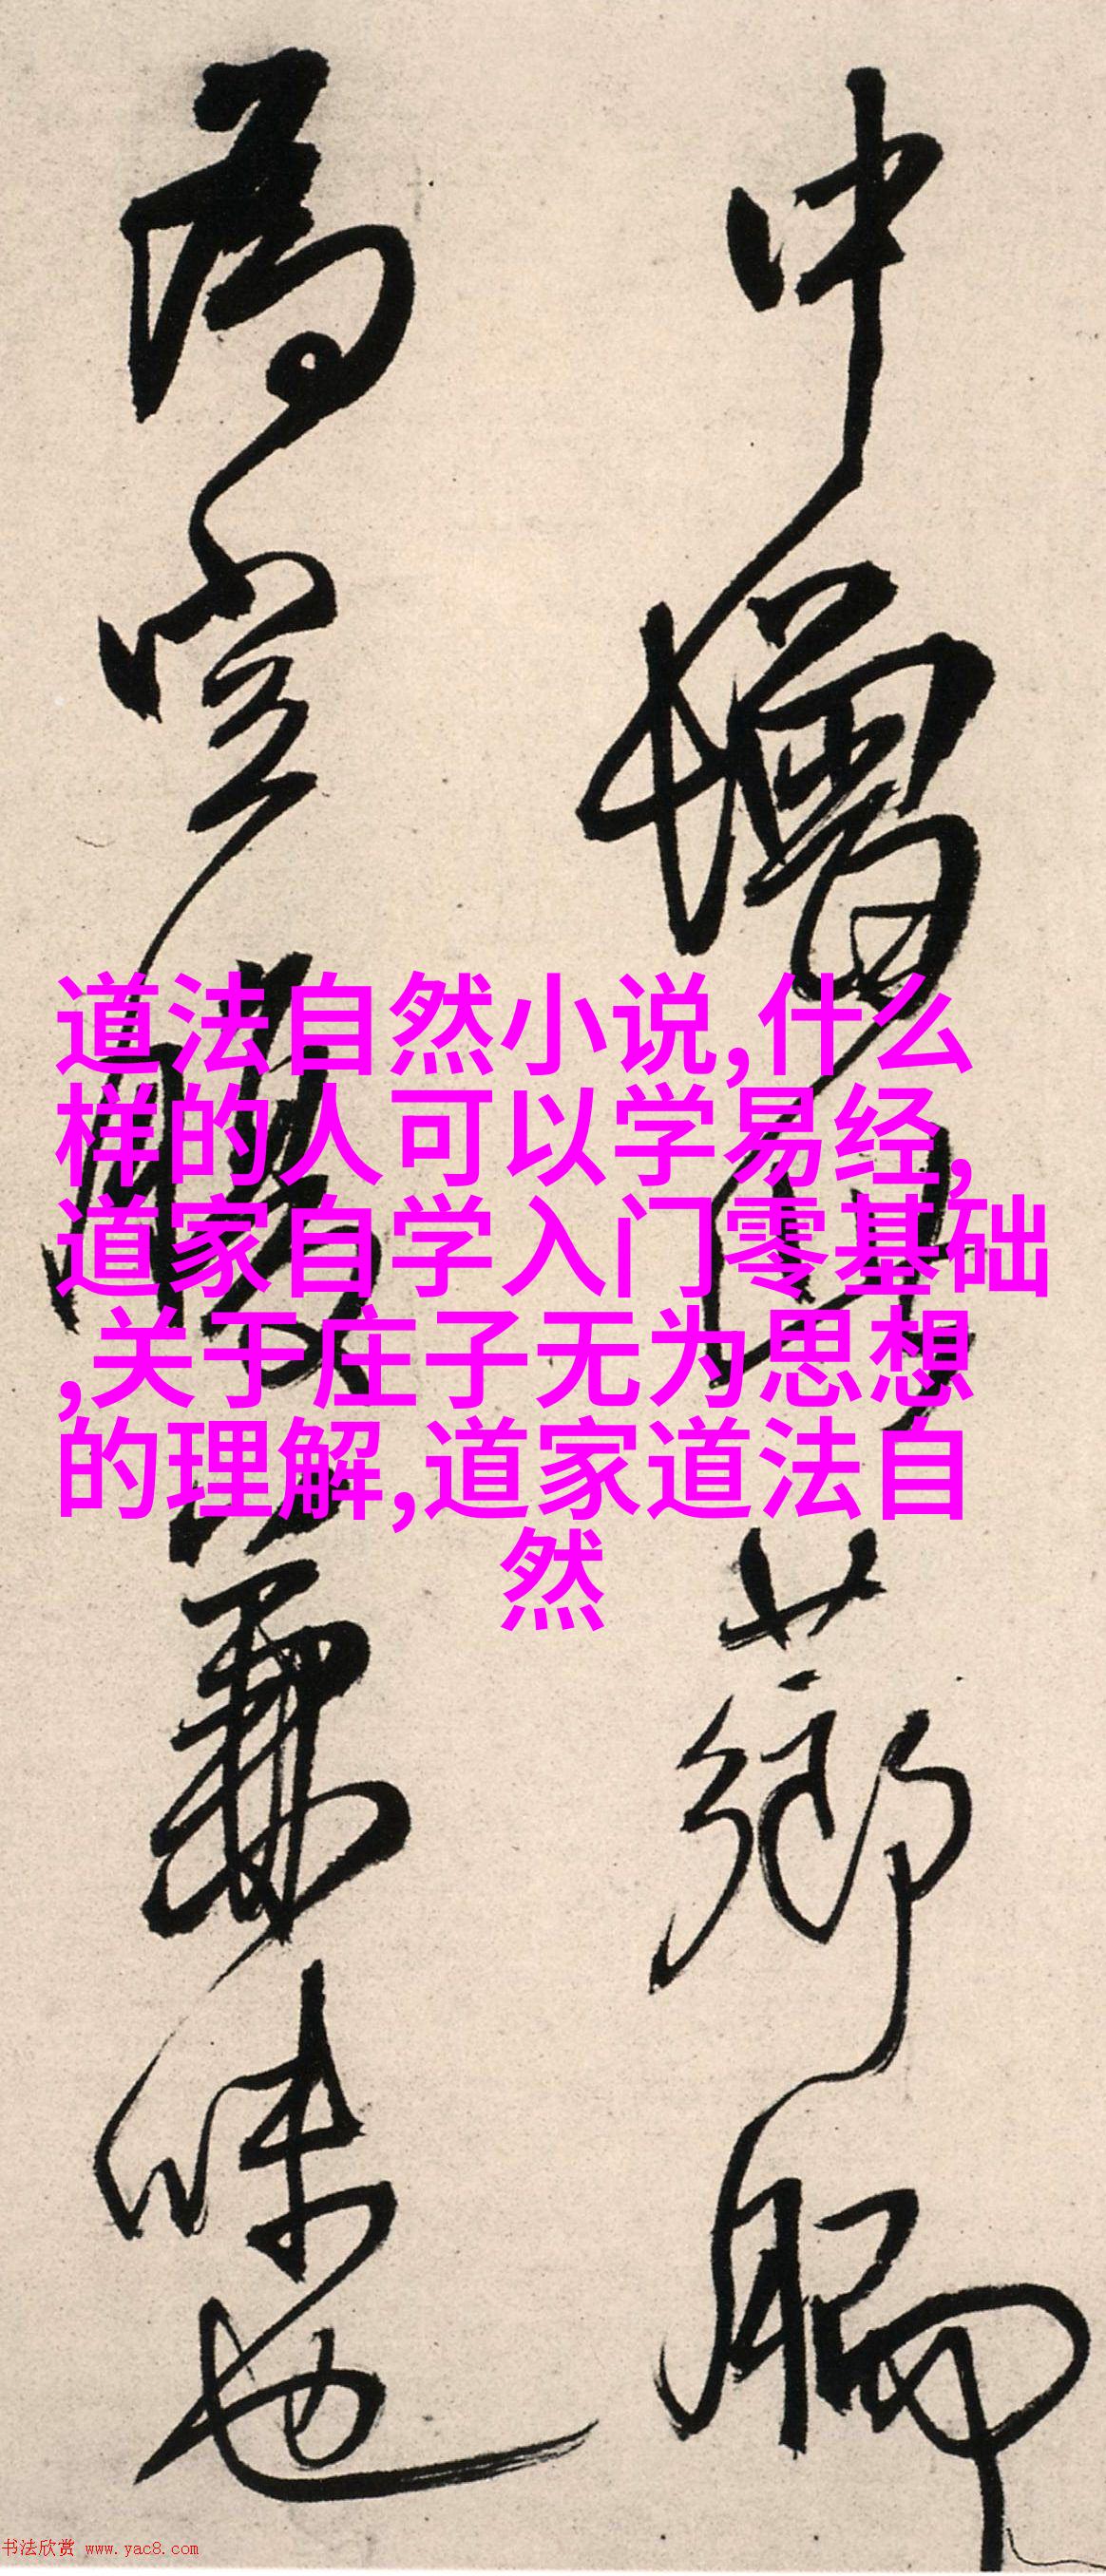 中增[山]薌膈
為豈腴兼味也
道法自然小说,什么
样的人可以学易经,
道家自学入门零基础
,关于庄子无为思想
的理解,道家道法自
然
书法欣赏 www.yac8.com